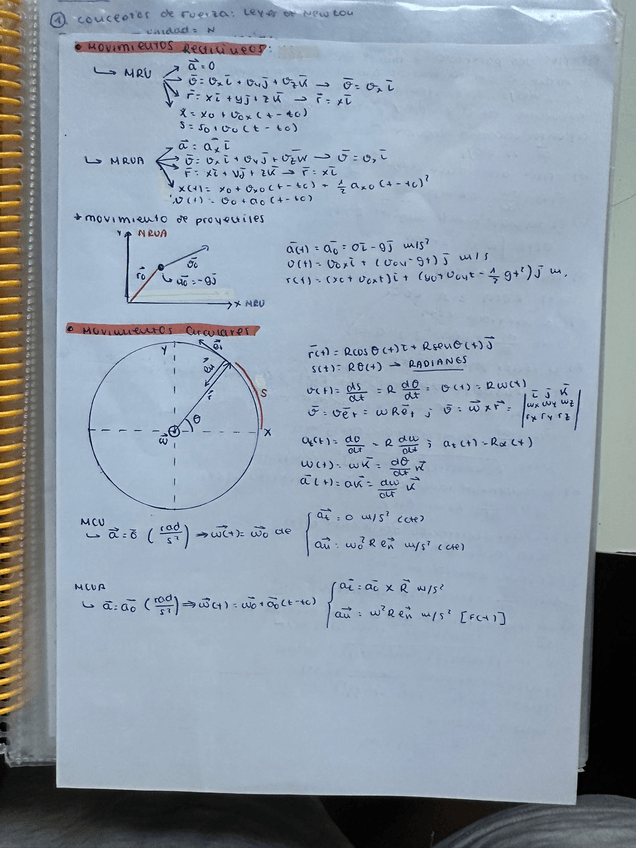 ① conceptos de fuerza: Leyes de Newton
unidad = N
• MOVIMIENTOS Rectilíneos:
↳ MRU
a⃗ = 0
v̄ = vx ī + vy j̄ + vz k̄ → v̄ = vx ī
r̄ = x ī + y j̄ + z k̄ → r̄ = x ī
x = x0 + v0x (t - t0)
s = s0 + v0 (t - t0)
↳ MRUA
ā = ax ī
v̄ = vx ī + vy j̄ + vz k̄ → v̄ = vx ī
r̄ = x ī + y j̄ + z k̄ → r̄ = x ī
x(t) = x0 + vx0 (t - t0) + 1/2 ax0 (t - t0)²
v(t) = v0 + a0 (t - t0)
* movimiento de proyectiles
Y MRUA
r̄0 v̄0
↳ ā0 = -g j̄
X MRU
ā(t) = ā0 = 0 ī - g j̄ m/s²
v(t) = v0x ī + (v0y - gt) j̄ m/s
r(t) = (x0 + v0x t) ī + (y0 + v0y t - 1/2 gt²) j̄ m.
• MOVIMIENTOS Circulares
Y
r̄
S
θ
w⃗
X
r̄(t) = R cos θ(t) ī + R sen θ(t) j̄
s(t) = R θ(t) → RADIANES
v(t) = ds/dt = R dθ/dt = v(t) = R w(t)
v̄ = v ēt = w R ēt ; v̄ = w⃗ × r̄ = | ī j̄ k̄ wx wy wz rx ry rz |
at(t) = dv/dt = R dw/dt ; at(t) = Rα(t)
w(t) = w k̄ = dθ/dt k̄
a⃗(t) = α k̄ = dw/dt k̄
MCU
↳ a⃗ = 0̄ (rad/s²) ⇒ w⃗(t) = w⃗0 de
a⃗t = 0 m/s² (cte)
a⃗n = w0² R e⃗n m/s² (cte)
MCUA
↳ a⃗ = a⃗0 (rad/s²) ⇒ w⃗(t) = w⃗0 + a⃗0 (t - t0)
a⃗t = a⃗0 × R⃗ m/s²
a⃗n = w² R e⃗n m/s² [f(t)]